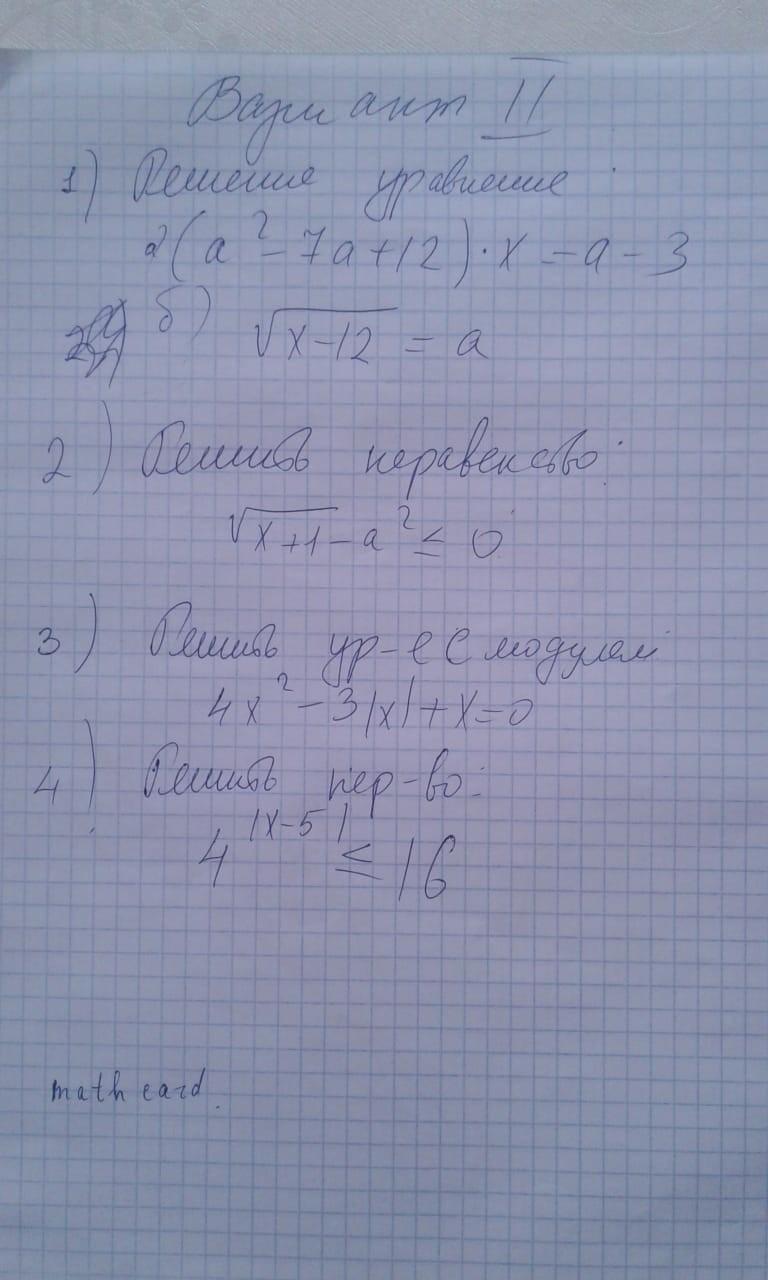 Вариант II
1) Решение уравнение:
а) (a² - 7a + 12) · x = a - 3
б) √(x-12) = a
2) Решить неравенство:
√(x+1) - a² ≤ 0
3) Решить ур-е с модулем
4x² - 3|x| + x = 0
4) Решить нер-во:
4^|x-5| ≤ 16
math card.